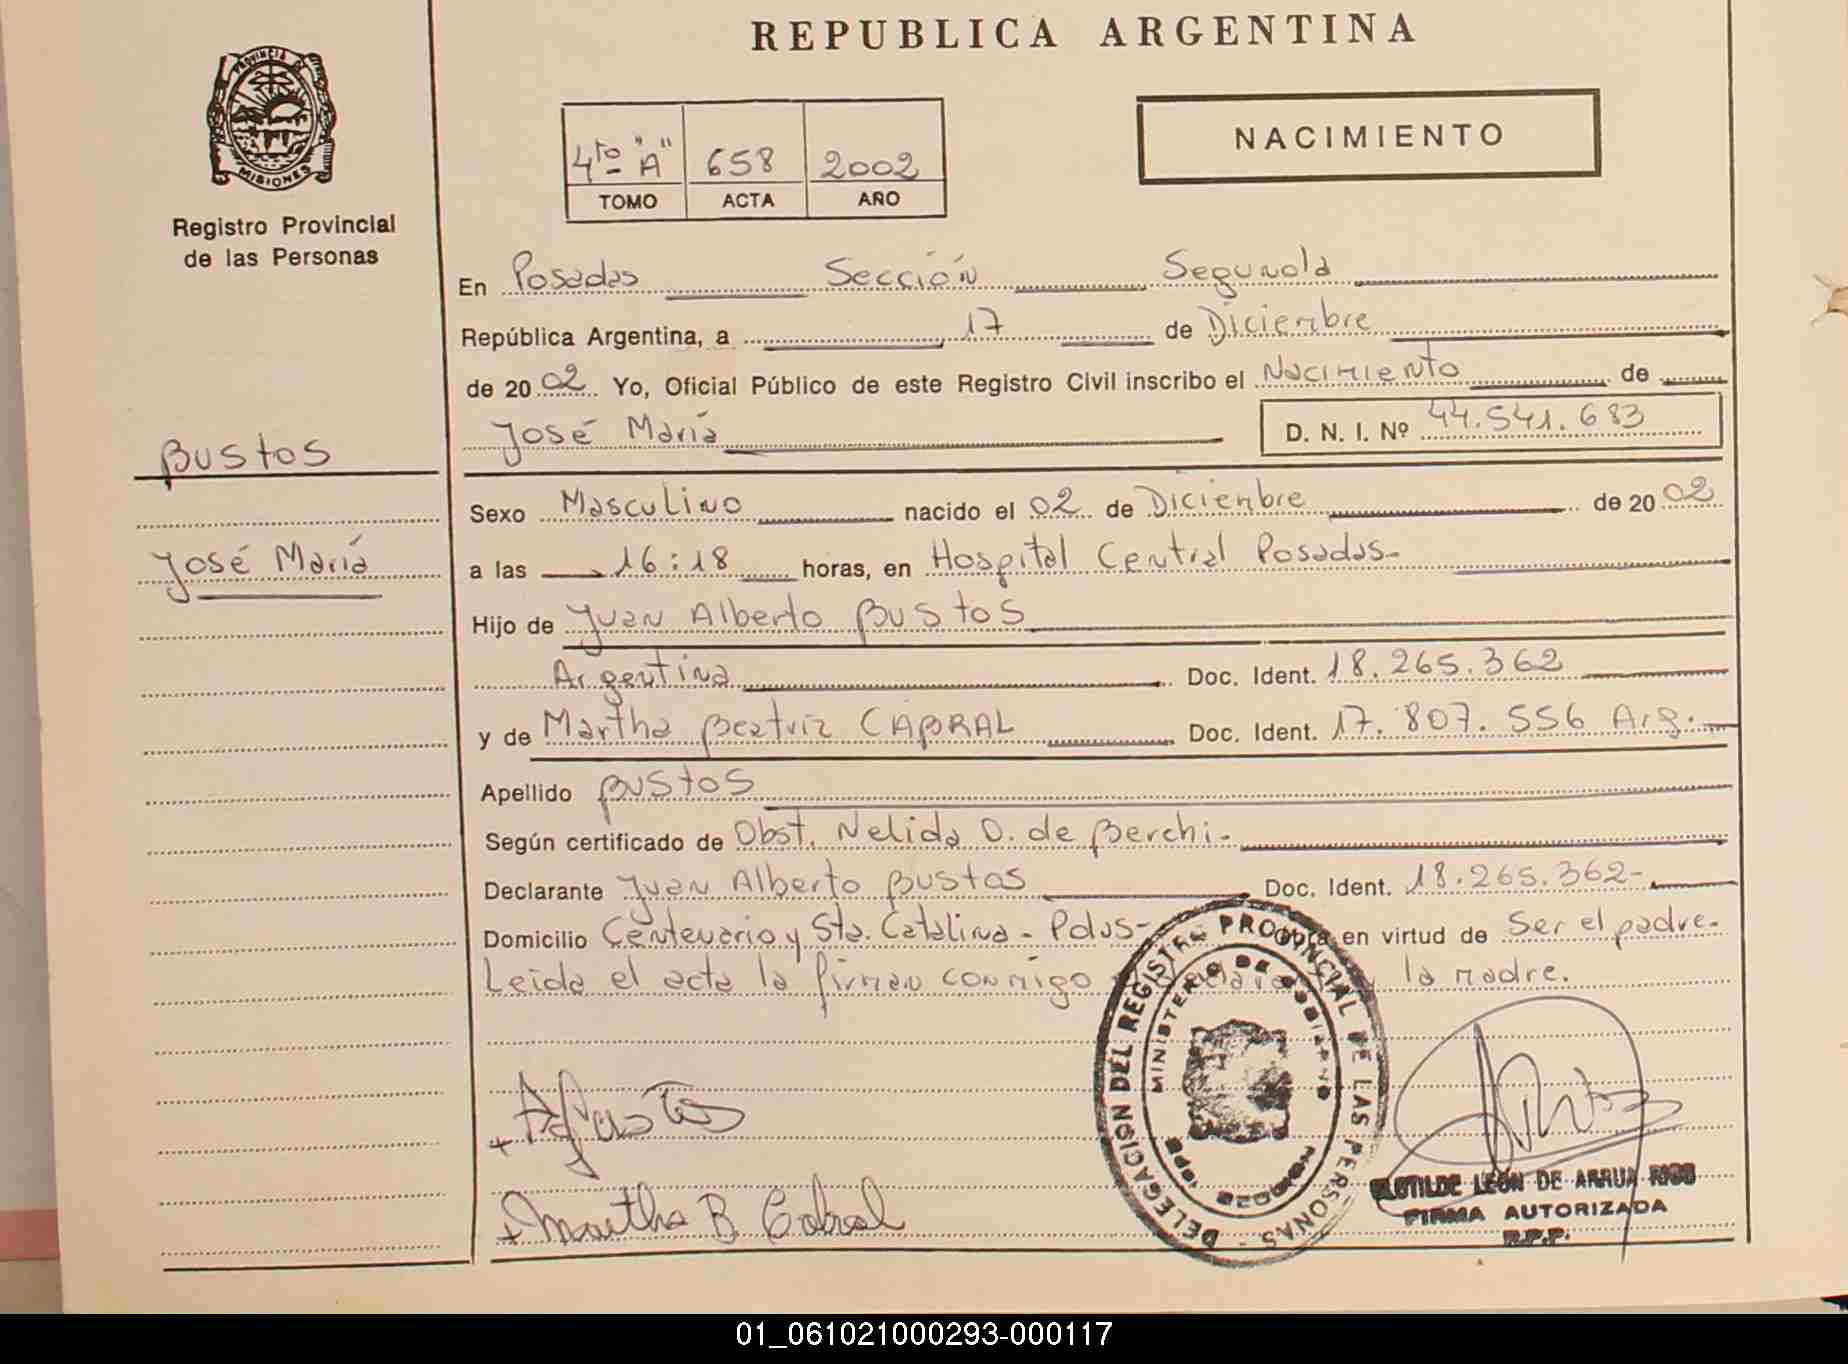 REPUBLICA ARGENTINA
PROVINCIA DE
MISIONES
Registro Provincial
de las Personas
4to "A" 658 2002
TOMO ACTA AÑO
NACIMIENTO
En Posadas Sección Segunda
República Argentina, a 17 de Diciembre
de 2002 Yo, Oficial Público de este Registro Civil inscribo el Nacimiento de
José María D. N. I. Nº 44.541.683
BUSTOS
José María
Sexo Masculino nacido el 02 de Diciembre de 2002
a las 16:18 horas, en Hospital Central Posadas-
Hijo de Juan Alberto BUSTOS
Argentina Doc. Ident. 18.265.362
y de Martha Beatriz CABRAL Doc. Ident. 17.807.556 Arg.
Apellido BUSTOS
Según certificado de Obst. Nelida O. de Berchi-
Declarante Juan Alberto BUSTOS Doc. Ident. 18.265.362-
Domicilio Centenario y Sta. Catalina - Pdas- Obra en virtud de Ser el padre-
Leida el acta la firman conmigo la madre.
DELEGACION DEL REGISTRO PROVINCIAL DE LAS PERSONAS -
MINISTERIO DE GOBIERNO
Martha B Cabral
CLOTILDE LEÓN DE ARRUA RIOS
FIRMA AUTORIZADA
R.P.P.
01_061021000293-000117